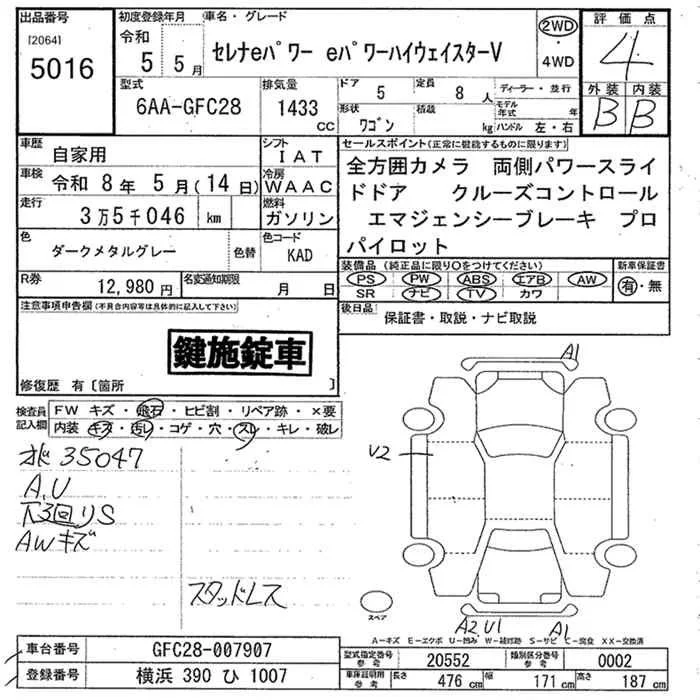 出品番号 [2064] 5016
初度登録年月 令和 5年 5月
車名・グレード セレナeパワー eパワーハイウェイスターV
2WD・4WD
評価点 4
外装 B 内装 B
型式 6AA-GFC28
排気量 1433 cc
ドア 5 定員 8 人
形状 ワゴン 積載 kg
ディーラー・並行
モデル年式 年
ハンドル 左・右
車歴 自家用
シフト IAT
車検 令和 8年 5月(14日)
冷房 WAAC
走行 3万5千046 km
燃料 ガソリン
色 ダークメタルグレー 色替
色コード KAD
R券 12,980円
名変通知期限 月 日
セールスポイント(正常に機能するものに限ります)
全方囲カメラ 両側パワースライ
ドドア クルーズコントロール
エマジェンシーブレーキ プロ
パイロット
装備品(純正品に限り○をつけてください)
PS PW ABS エアB AW
SR ナビ TV カワ
新車保証書 有・無
後日品 保証書・取説・ナビ取説
注意事項申告欄(不具合内容等は具体的に記入して下さい)
鍵施錠車
修復歴 有〔箇所 〕
検査員記入欄
FW キズ・飛石・ヒビ割・リペア跡・×要
内装 キズ・汚レ・コゲ・穴・スレ・キレ・破レ
35047
A,U
リS
AWキズ
スタッドレス
A1
U2
A2 U1
A1
スペア
A-キズ E-エクボ U-凹み W-補修跡 S-サビ C-腐食 XX-交換済
車台番号 GFC28-007907
登録番号 横浜 390 ひ 1007
型式指定番号 参考 20552
類別区分番号 参考 0002
車庫証明用 参考 長さ 476 cm 幅 171 cm 高さ 187 cm